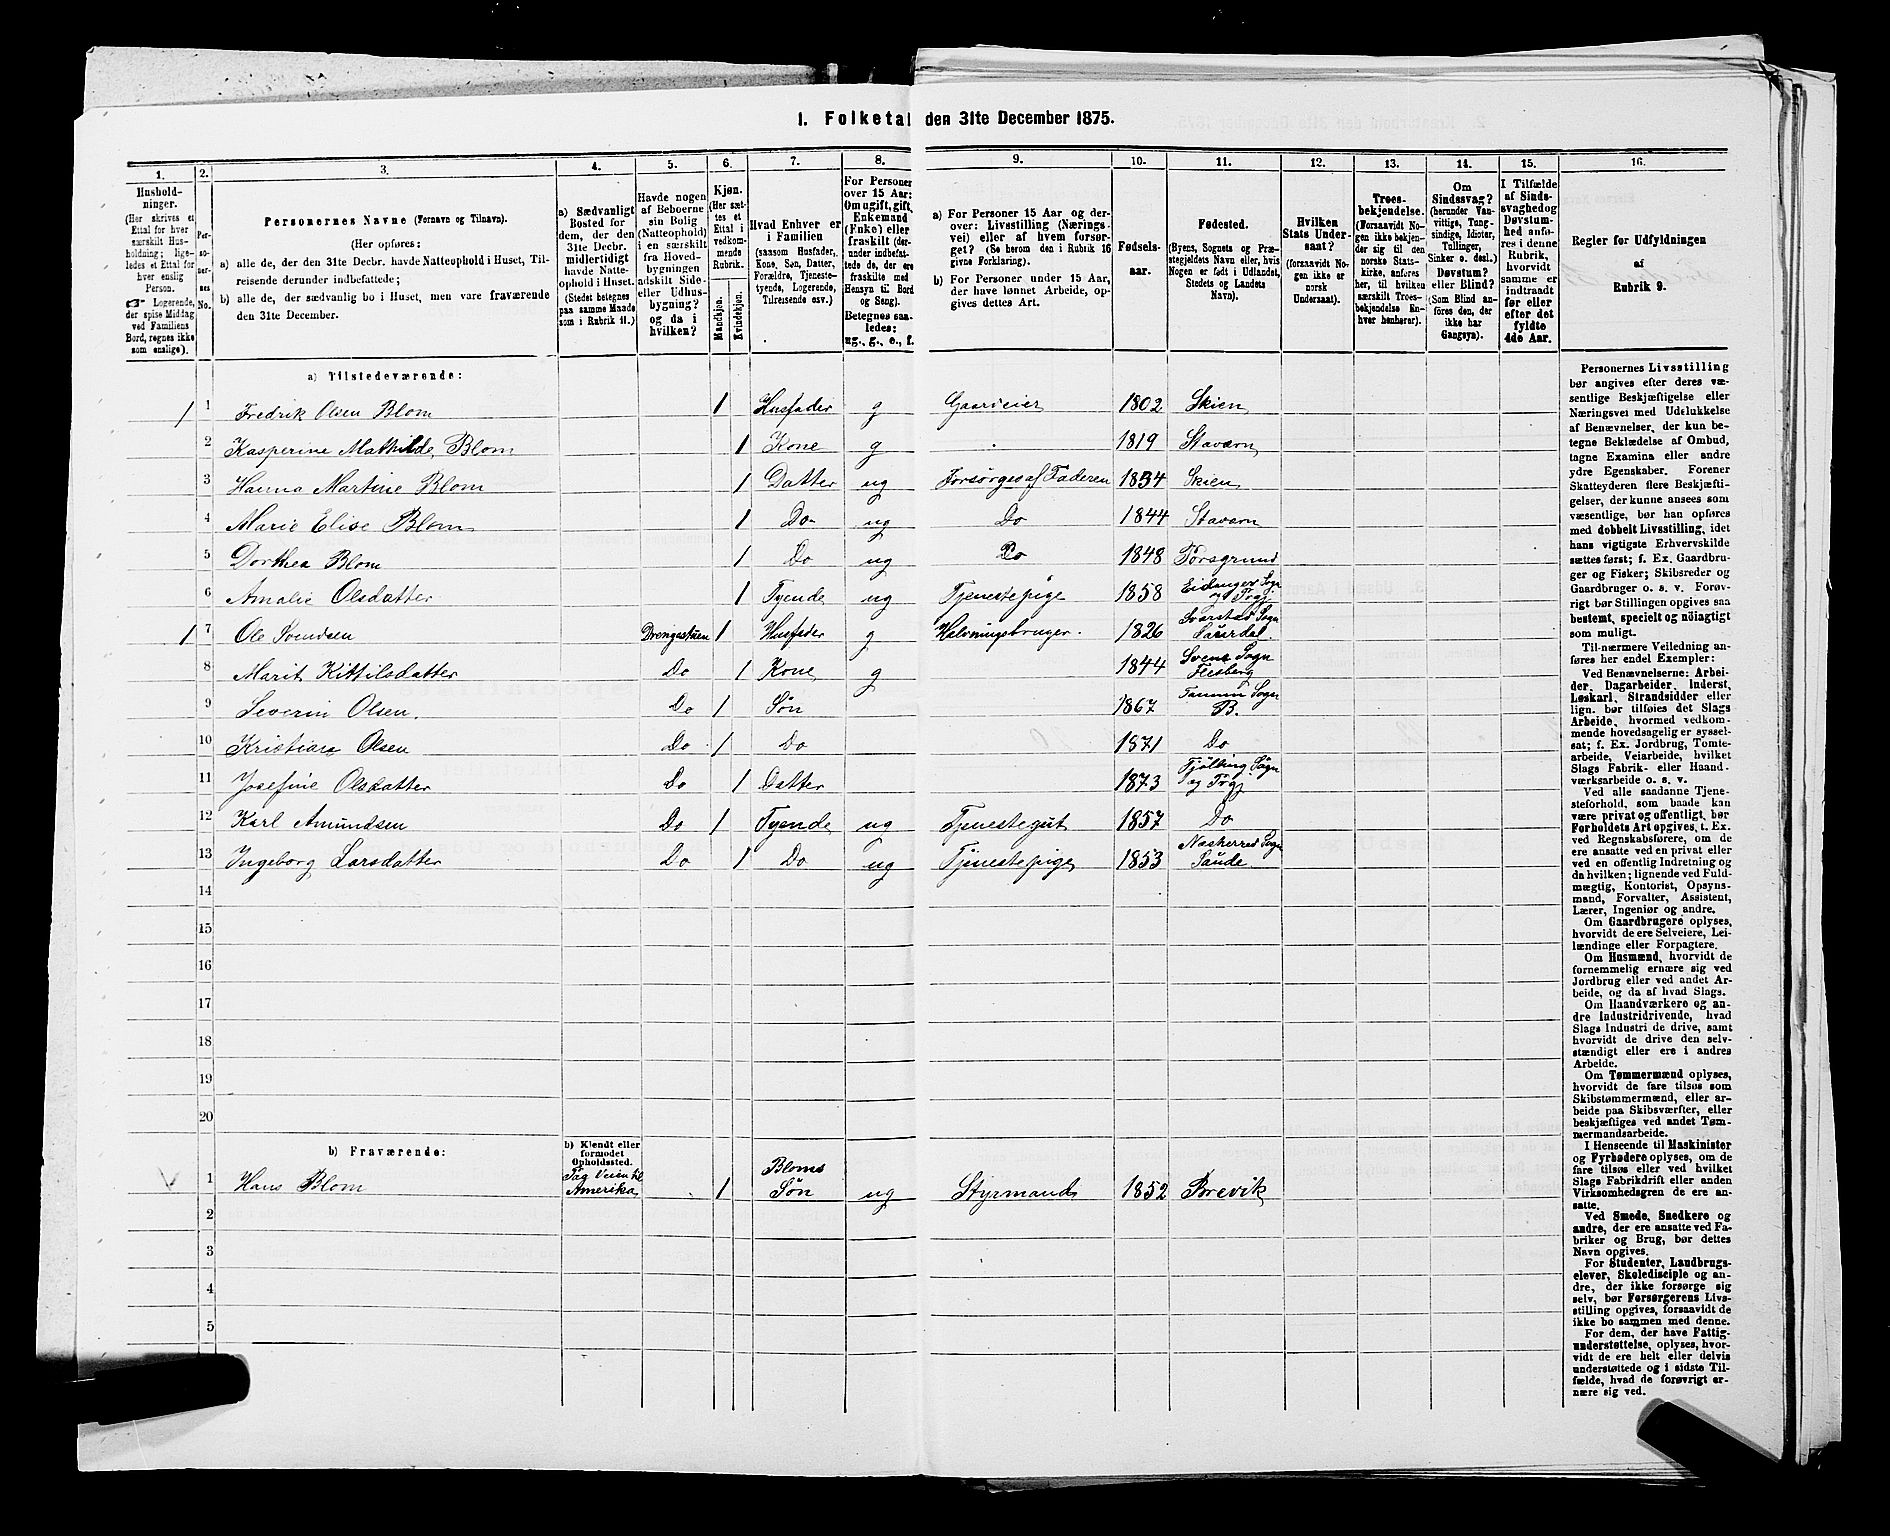 1. Folketal den 31te December 1875.
1. 2. 3. 4. 5. 6. 7. 8. 9. 10. 11. 12. 13. 14. 15. 16.
Hushold-
ninger.
(Her skrives et
Ettal for hver
særskilt Hus-
holdning; lige-
ledes et Ettal for
hver enslig
Person.
Logerende,
der spise Middag
ved Familiens
Bord, regnes ikke
som enslige).
Per-
so-
ner-
nes
No.
Personernes Navne (Fornavn og Tilnavn).
(Her opføres:
a) alle de, der den 31te Decbr. havde Natteophold i Huset, Til-
reisende derunder indbefattede;
b) alle de, der sædvanlig bo i Huset, men vare fraværende
den 31te December.
a) Sædvanligt
Bosted for
dem, der den
31te Decbr.
midlertidigt
havde Natte-
ophold i Huset.
(Stedet betegnes
paa samme Maade
som i Rubrik 11.)
Havde nogen
af Beboerne
sin Bolig
(Natteophold)
i en særskilt
fra Hoved-
bygningen
adskilt Side-
eller Udhus-
bygning?
og da i
hvilken?
Kjøn.
(Her sæt-
tes et
Ettal i
vedkom-
mende
Rubrik.
Mandkjøn.
Kvindekjøn.
Hvad Enhver er
i Familien
(saasom Husfader,
Kone, Søn, Datter,
Forældre, Tjeneste-
tyende, Logerende,
Tilreisende osv.)
For Personer
over 15 Aar:
Om ugift, gift,
Enkemand
(Enke) eller
fraskilt (der-
under indbefat-
tede de, der ere
fraskilte med
Hensyn til Bord
og Seng).
Betegnes saa-
ledes:
ug., g., e., f.
a) For Personer 15 Aar og der-
over: Livsstilling (Nærings-
vei) eller af hvem forsør-
get? (Se herom den i Rubrik 16
givne Forklaring).
b) For Personer under 15 Aar,
der have lønnet Arbeide, op-
gives dettes Art.
Fødsels-
aar.
Fødested.
(Byens, Sognets og Præ-
stegjeldets Navn eller, hvis
Nogen er født i Udlandet,
Stedets og Landets
Navn).
Hvilken
Stats Under-
saat?
(forsaavidt No-
gen ikke er
norsk
Undersaat).
Troes-
bekjendelse.
(Forsaavidt No-
gen ikke bekjen-
der sig til den
norske Stats-
kirke, anføres
her, til hvilken
særskilt Troes-
bekjendelse En-
hver henhører).
Om
Sindssvag?
(herunder Van-
vittige, Tung-
sindige, Idioter,
Tullinger,
Sinker o. desl.)
Døvstum?
eller Blind?
(Som Blind an-
føres den, der
ikke har
Gangsyn).
I Tilfælde
af Sinds-
svaghed og
Døvstum-
hed anfø-
res i denne
Rubrik,
hvorvidt
samme er
indtraadt
før eller
efter det
fyldte
4de Aar.
Regler for Udfyldningen
af
Rubrik 9.
a) Tilstedeværende:
1 1 Fredrik Olsen Blom 1 Husfader g Gaardeier 1802 Skien
2 Kasperine Mathilde Blom 1 Kone g 1819 Staværn
3 Hanna Martine Blom 1 Datter ug Forsørges af Faderen 1834 Skien
4 Marie Elise Blom 1 Do ug Do 1844 Staværn
5 Dorthea Blom 1 Do ug Do 1848 Porsgrund
6 Amalie Olsdatter 1 Tyende ug Tjenestepige 1858 Eidanger Sogn og Prgj
1 7 Ole Svendsen Drengestuen 1 Husfader g Halvningsbruger. 1826 Svarstad Sogn Laurdal
8 Marit Kittilsdatter Do 1 Kone g 1844 Svene Sogn Flesberg
9 Severin Olsen. Do 1 Søn 1867 Tanum Sogn B.
10 Kristian Olsen Do 1 Do 1871 Do
11 Josefine Olsdatter Do 1 Datter 1873 Tjølling Sogn og Prgj
12 Karl Amundsen Do 1 Tyende ug Tjenestegut 1857 Do
13 Ingeborg Larsdatter Do 1 Do ug Tjenestepige 1853 Næsherred Sogn Saude
14
15
16
17
18
19
20
b) Fraværende:
b) Kjendt eller
formodet
Opholdssted.
1 Hans Blom Paa Veien til Amerika 1 Bloms Søn ug Styrmand 1852 Brevik
2
3
4
5
Personernes Livsstilling
bør angives efter deres væ-
sentlige Beskjæftigelse eller
Næringsvei med Udelukkelse
af Benævnelser, der kun be-
tegne Beklædelse af Ombud,
tagne Examina eller andre
ydre Egenskaber. Forener
Skatteyderen flere Beskjæfti-
gelser, der kunne ansees som
væsentlige, bør han opføres
med dobbelt Livsstilling, idet
hans vigtigste Erhvervskilde
sættes først; f. Ex. Gaardbru-
ger og Fisker; Skibsreder og
Gaardbruger o. s. v. Forøv-
rigt bør Stillingen opgives saa
bestemt, specielt og nøiagtigt
som muligt.
Til-nærmere Veiledning an-
føres her endel Exempler:
Ved Benævnelserne: Arbei-
der, Dagarbeider, Inderst,
Løskarl, Strandsidder eller
lign. bør tilføies det Slags
Arbeide, hvormed vedkom-
mende hovedsagelig er syssel-
sat; f. Ex. Jordbrug, Tomte-
arbeide, Veiarbeide, hvilket
Slags Fabrik- eller Haand-
værksarbeide o. s. v.
Ved alle saadanne Tjene-
steforhold, som baade kan
være privat og offentligt, bør
Forholdets Art opgives, t. Ex.
ved Regnskabsførere, om de
ere ansatte ved en privat eller
ved en offentlig Indretning og
da hvilken; lignende ved Fuld-
mægtig, Kontorist, Opsyns-
mand, Forvalter, Assistent,
Lærer, Ingeniør og andre.
Om Gaardbrugere oplyses,
hvorvidt de ere Selveiere, Lei-
lændinge eller Forpagtere.
Om Husmænd, hvorvidt de
fornemmelig ernære sig ved
Jordbrug eller ved andet Ar-
beide, og da af hvad Slags.
Om Haandværkere og an-
dre Industridrivende, hvad
Slags Industri de drive, samt
hvorvidt de drive den selv-
stændigt eller ere i andres
Arbeide.
Om Tømmermænd oplyses,
hvorvidt de fare tilsøs som
Skibstømmermænd, eller ar-
beide paa Skibsværfter, eller
beskjæftiges ved andet Tøm-
mermandsarbeide.
I Henseende til Maskinister
og Fyrbødere oplyses, om de
fare tilsøs eller ved hvilket
Slags Fabrikdrift eller anden
Virksomhedsgren de ere an-
satte.
Ved Smede, Snedkere og
andre, der ere ansatte ved Fa-
briker og Brug, bør dettes
Navn opgives.
For Studenter, Landbrugs-
elever, Skoledisciple og an-
dre, der ikke forsørge sig
selv, bør Forsørgerens Livs-
stilling opgives, forsaavidt de
ikke bo sammen med denne.
For dem, der have Fattig-
understøttelse, oplyses, hvor-
vidt de ere helt eller delvis
understøttede og i sidste Til-
fælde, hvad de forøvrigt er-
nære sig ved.